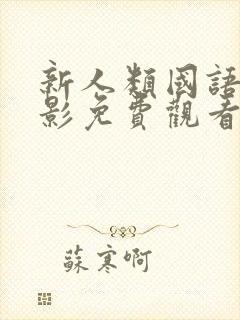 新人類國語
影免費觀看
蘇寒啊